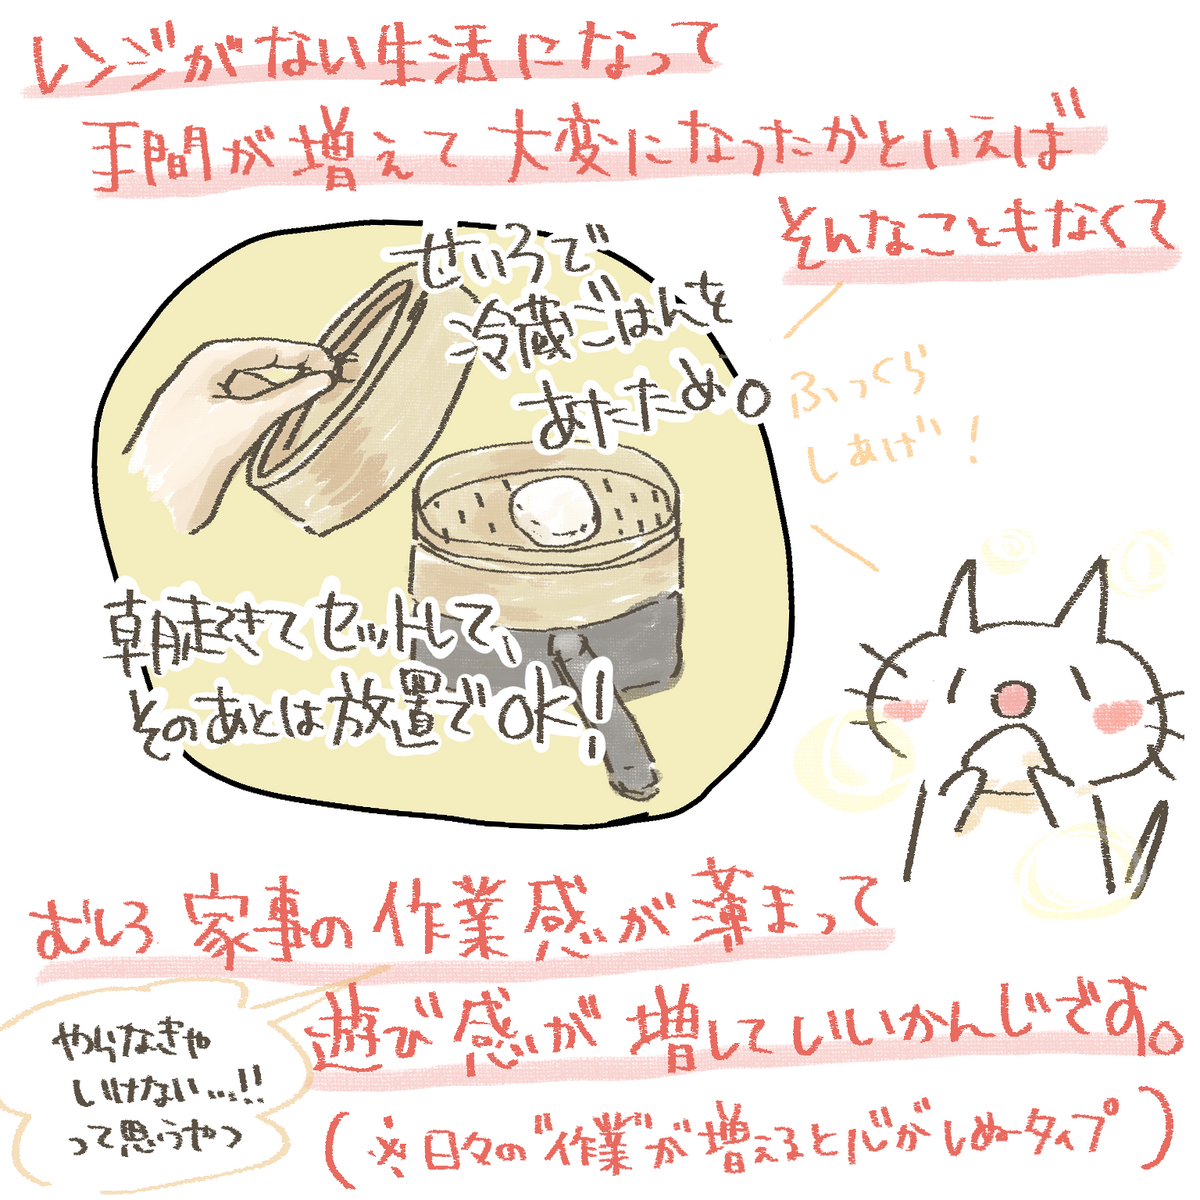 レンジがない生活になって
手間が増えて大変になったかといえば
そんなこともなくて
せいろで
冷蔵ごはんを
あたため。
ふっくら
しあげ!
朝起きてセットして、
そのあとは放置でOK!
むしろ家事の作業感が薄まって
遊び感が増していいかんじです。
やらなきゃ
いけない...!!
って思うやつ
(※日々の"作業"が増えると心がしぬータイプ)